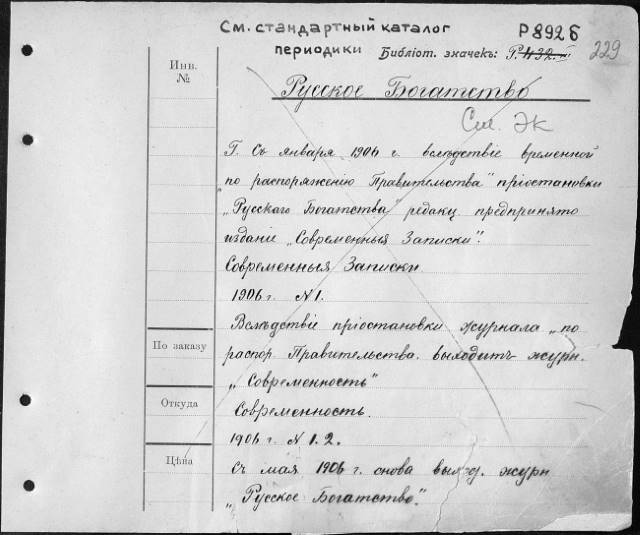 См. стандартный каталог
периодики
Р8926
Библіот. значекъ: Р.432.
229
Инв.
№
Русское Богатство
См. Эк
Г. Съ января 1906 г. вслѣдствіе временной
по распоряженію Правительства" пріостановки
„Русскаго Богатства" редакц. предпринято
изданіе „Современныя Записки".
Современныя Записки
1906 г. N 1.
Вслѣдствіе пріостановки журнала „по
По заказу
распор. Правительства. выходитъ журн.
„Современность"
Откуда
Современность.
1906 г. N 1. 2.
Цѣна
Съ мая 1906 г. снова выход. журн
„Русское Богатство".